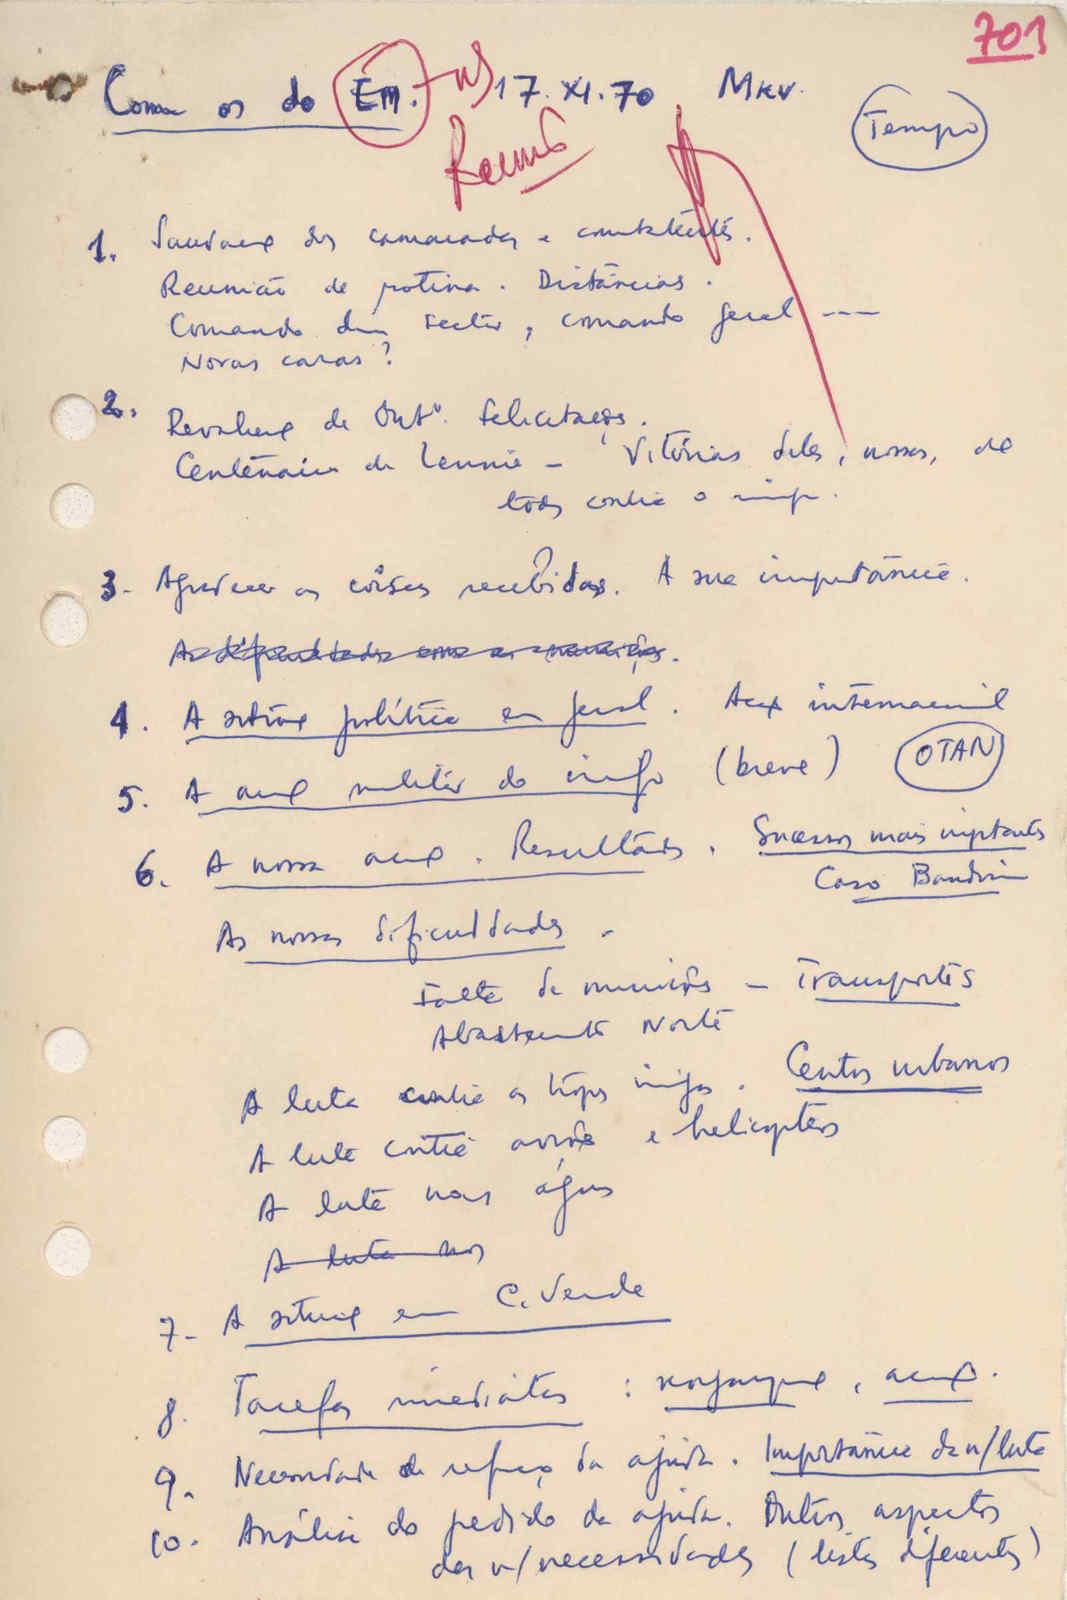 701
Com os do Em. 17.XI.70 Mkv.
Tempo
1. Saudaç dos camaradas e combatentes.
Reunião de rotina. Distâncias.
Comando dum sector, comando geral ---
Novas caras?
2. Revoluç de Outº. Felicitações.
Centenário de Lenine - Vitórias deles, nossas, de
todos contra o inip.
3- Agradecer as coisas recebidas. A sua importância.
4. A situaç política em geral. Acç internacional
5. A acç militar do inigo (breve) OTAN
6. A nossa acç. Resultados. Sucessos mais importantes
Caso
As nossas dificuldades -
Falta de munições - Transportes
Abastecimento Norte
A luta contra as tropas inigas. Centros urbanos
A luta contra aviões e helicopteros
A luta nas águas
A luta nos
7- A situaç em C. Verde
8. Tarefas imediatas : , acç.
9. Necessidade de reforço da ajuda. Importância da n/luta
10. Análise do pedido da ajuda. Outros aspectos
das n/necessidades (listas diferentes)